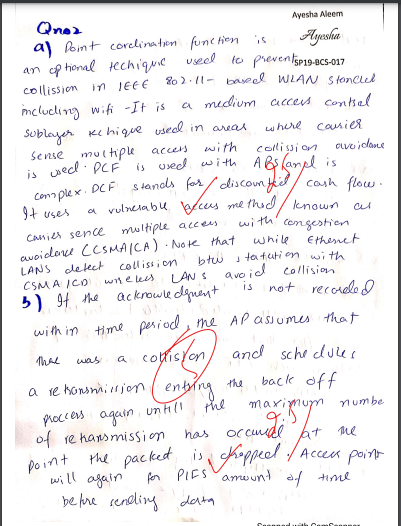 Ayesha Aleem
Qno2
Ayesha
a) Point cordination function is
an optional techique used to prevent SP19-BCS-017
collission in IEEE 802.11- based WLAN standed
including wifi - It is a medium access contsol
sublayer techique used in areas where carier
sense multiple access with collission avoidane
is used. PCF is used with APS and is
complex. DCF stands for discounted cash flow.
It uses a vulnerable access method known as
carier sence multiple access with congestion
avoidance (CSMA/CA). Note that while Ethernet
LANS detect collission btw stations with
CSMA/CD wireless LANs avoid collision
b) If the acknowledgment is not recorded
within time period, the AP assumes that
there was a collision and schedules
a retransmission entring the back off
proccess again untill the maximum numbe
of retransmission has occured at the
point the packed is dropped. Access point
will again for PIFS amount of time
before sending data
Scanned with CamScanner